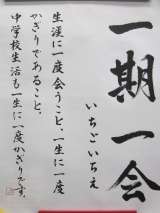 一期一会
いちごいちえ
生涯に一度会うこと、一生に一度
かぎりであること。
中学校生活も一生に一度かぎりです。